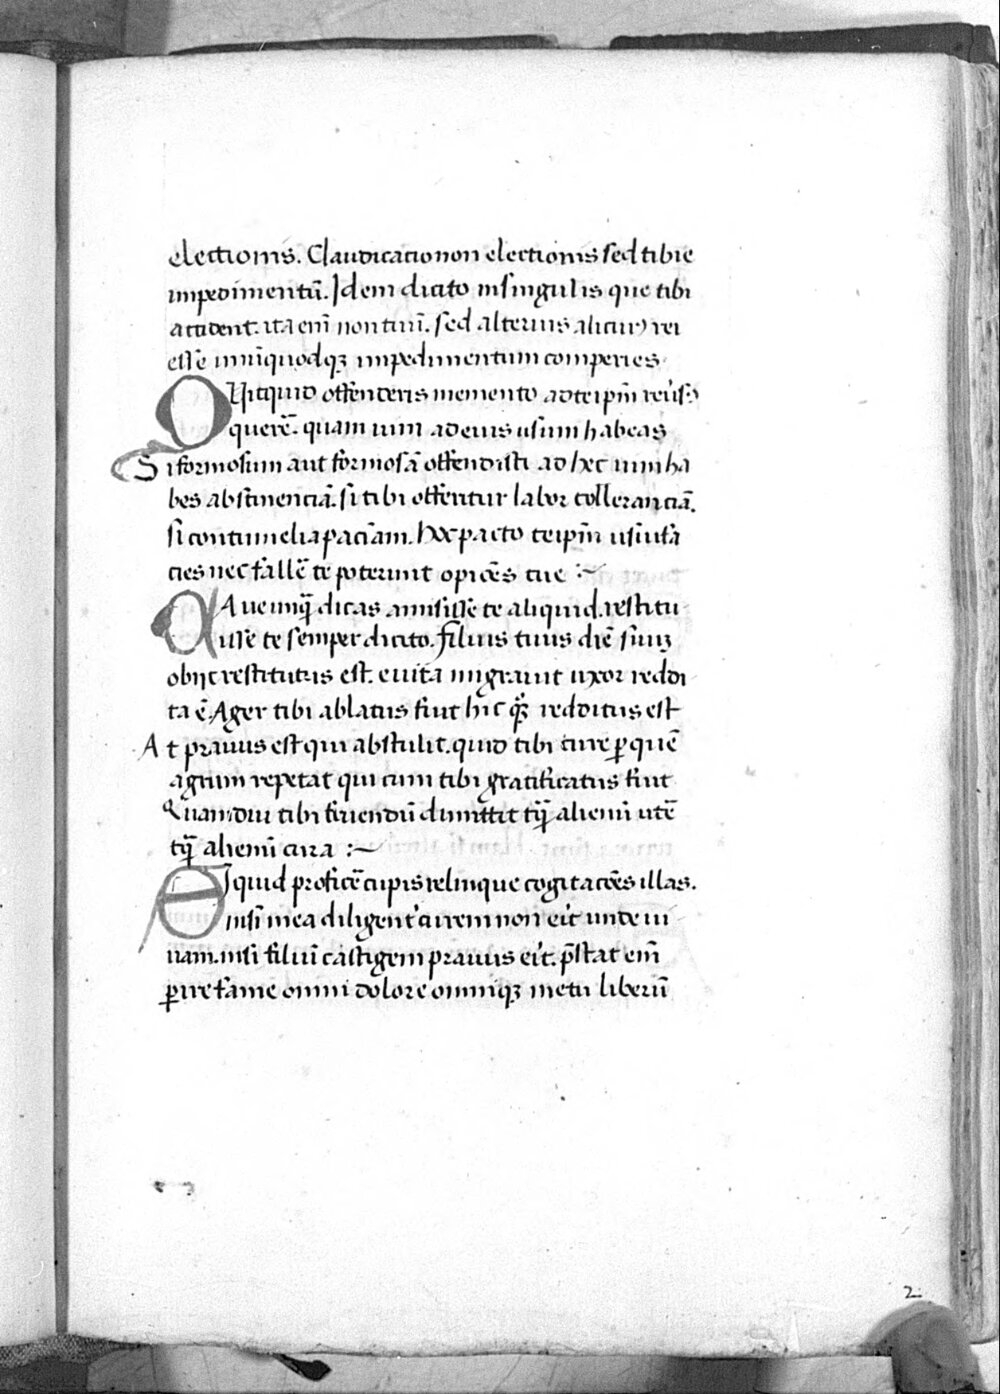 electionis. Claudicatio non electionis sed tibie
impedimentū. Idem dicito in singulis que tibi
accident. ita em̄ non tuū. sed alterius alicuiꝰ rei
esse unūquodqꝫ impedimentum comperies
Quitquid offenderis memento ad teipm̄ reusꝰ
querē. quam uim ad eius usum habeas
Si formosum aut formosā offendisti ad hec uim ha
bes abstinenciā. si tibi offeritur labor tolleranciā.
si contumelia paciam. Hoc pacto teipm̄ usuifa
cies nec fallē te poterunt opiōes tue :~
Naue unq̄ dicas amisisse te aliquid. restitu
isse te semper dicito. filius tuus diē suuꝫ
obijt restitutus est. e uita migrauit uxor reddi
ta ē. Ager tibi ablatus fiut hic qꝫ redditus est
At prauus est qui abstulit. quid tibi cure p quē
agrum repetat qui eum tibi gratificatus fiut
Quamdiu tibi feriendū dimittit tq̄ alienū utē
tq̄ alienū cura :~
Siquid proficē cupis relinque cogitacōes illas.
nisi mea diligent' curem non eīt unde ui
uam. nisi filiū castigem prauus eīt. p̄stat em̄
pire fame omni dolore omniqꝫ metu liberū
2